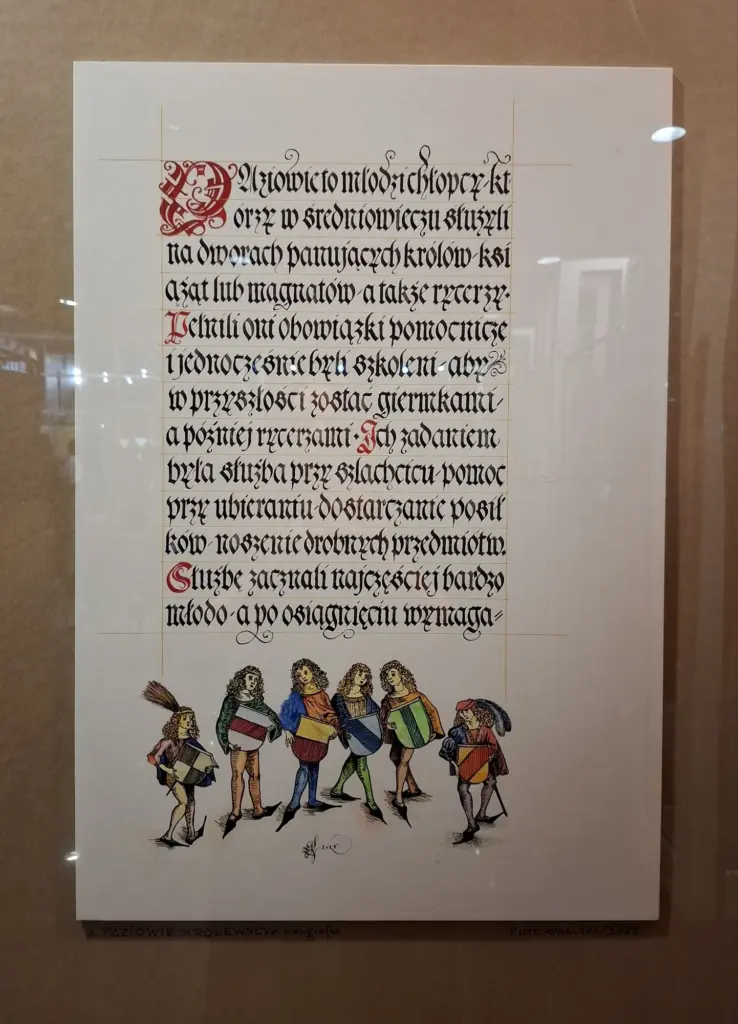 PAziowie to młodzi chłopcy·kt
órzy w średniowieczu służyli
na dworach panujących królów·ksi
ążąt lub magnatów·a także rycerzy·
Pełnili oni obowiązki pomocnicze
i jednocześnie byli szkoleni·aby
w przyszłości zostać giermkami·
a później rycerzami·Ich zadaniem
była służba przy szlachcicu·pomoc
przy ubieraniu·dostarczanie posił
ków·noszenie drobnych przedmiotw.
Służbę zacznali najczęściej bardzo
młodo·a po osiągnięciu wymaga=
2025
PAZIOWIE KRÓLEWSCY kaligrafia
PIOTR /2025